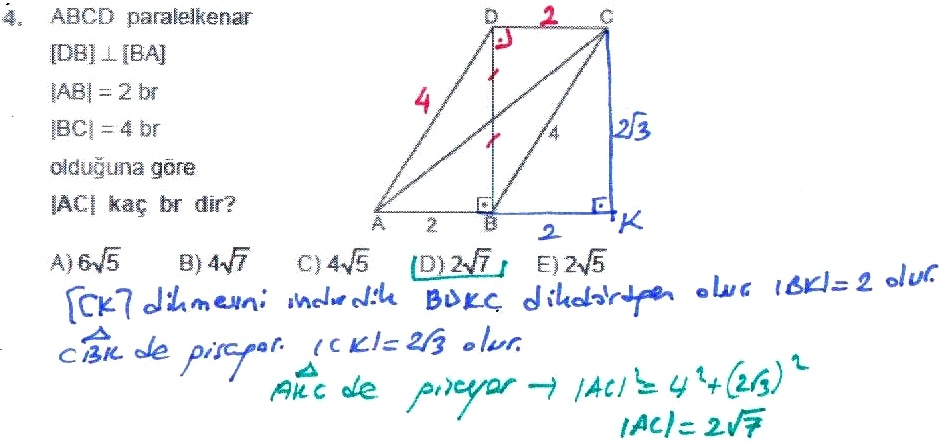 4. ABCD paralelkenar
[DB] ⊥ [BA]
|AB| = 2 br
|BC| = 4 br
olduğuna göre
|AC| kaç br dir?
D 2 C
4
4
2√3
A 2 B 2 K
A) 6√5 B) 4√7 C) 4√5 D) 2√7 E) 2√5
[CK] dikmesini indirdik BDKC dikdörtgen olur |BK| = 2 olur.
CBK de pisagor. |CK| = 2√3 olur.
AKC de pisagor → |AC|² = 4² + (2√3)²
|AC| = 2√7